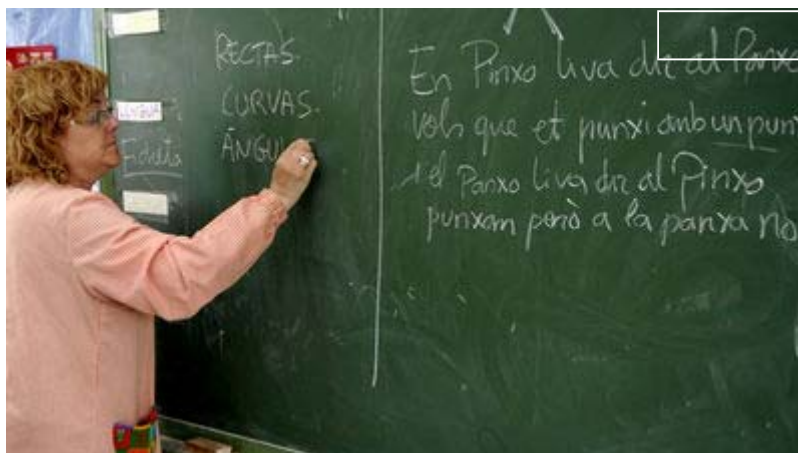 RECTAS.
CURVAS.
ÁNGUL
En Pinxo li va dir al Panxo
vols que et punxi amb un pun
i el Panxo li va dir al Pinxo
punxam però a la panxa no